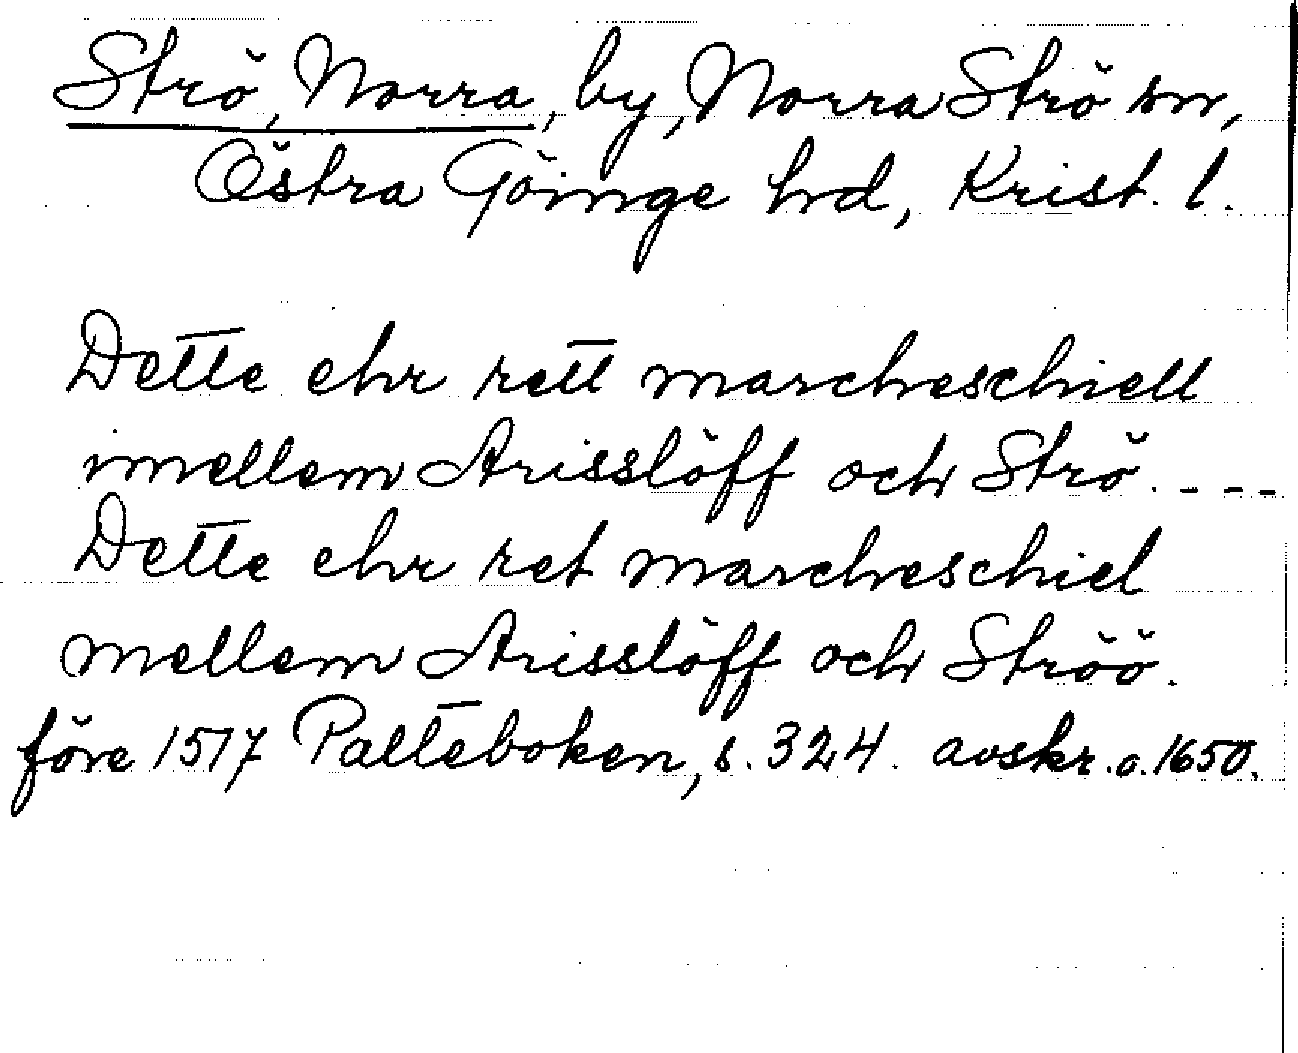 Strö, Norra, by, Norra Strö sn,
Östra Göinge hd, Krist. l.
Dette ehr rett marcheschiell
imellem Arisslöff och Strö. ---
Dette ehr ret marcheschiel
mellem Arisslöff och Ströö.
före 1517 Palteboken, s. 324. avskr. o. 1650.